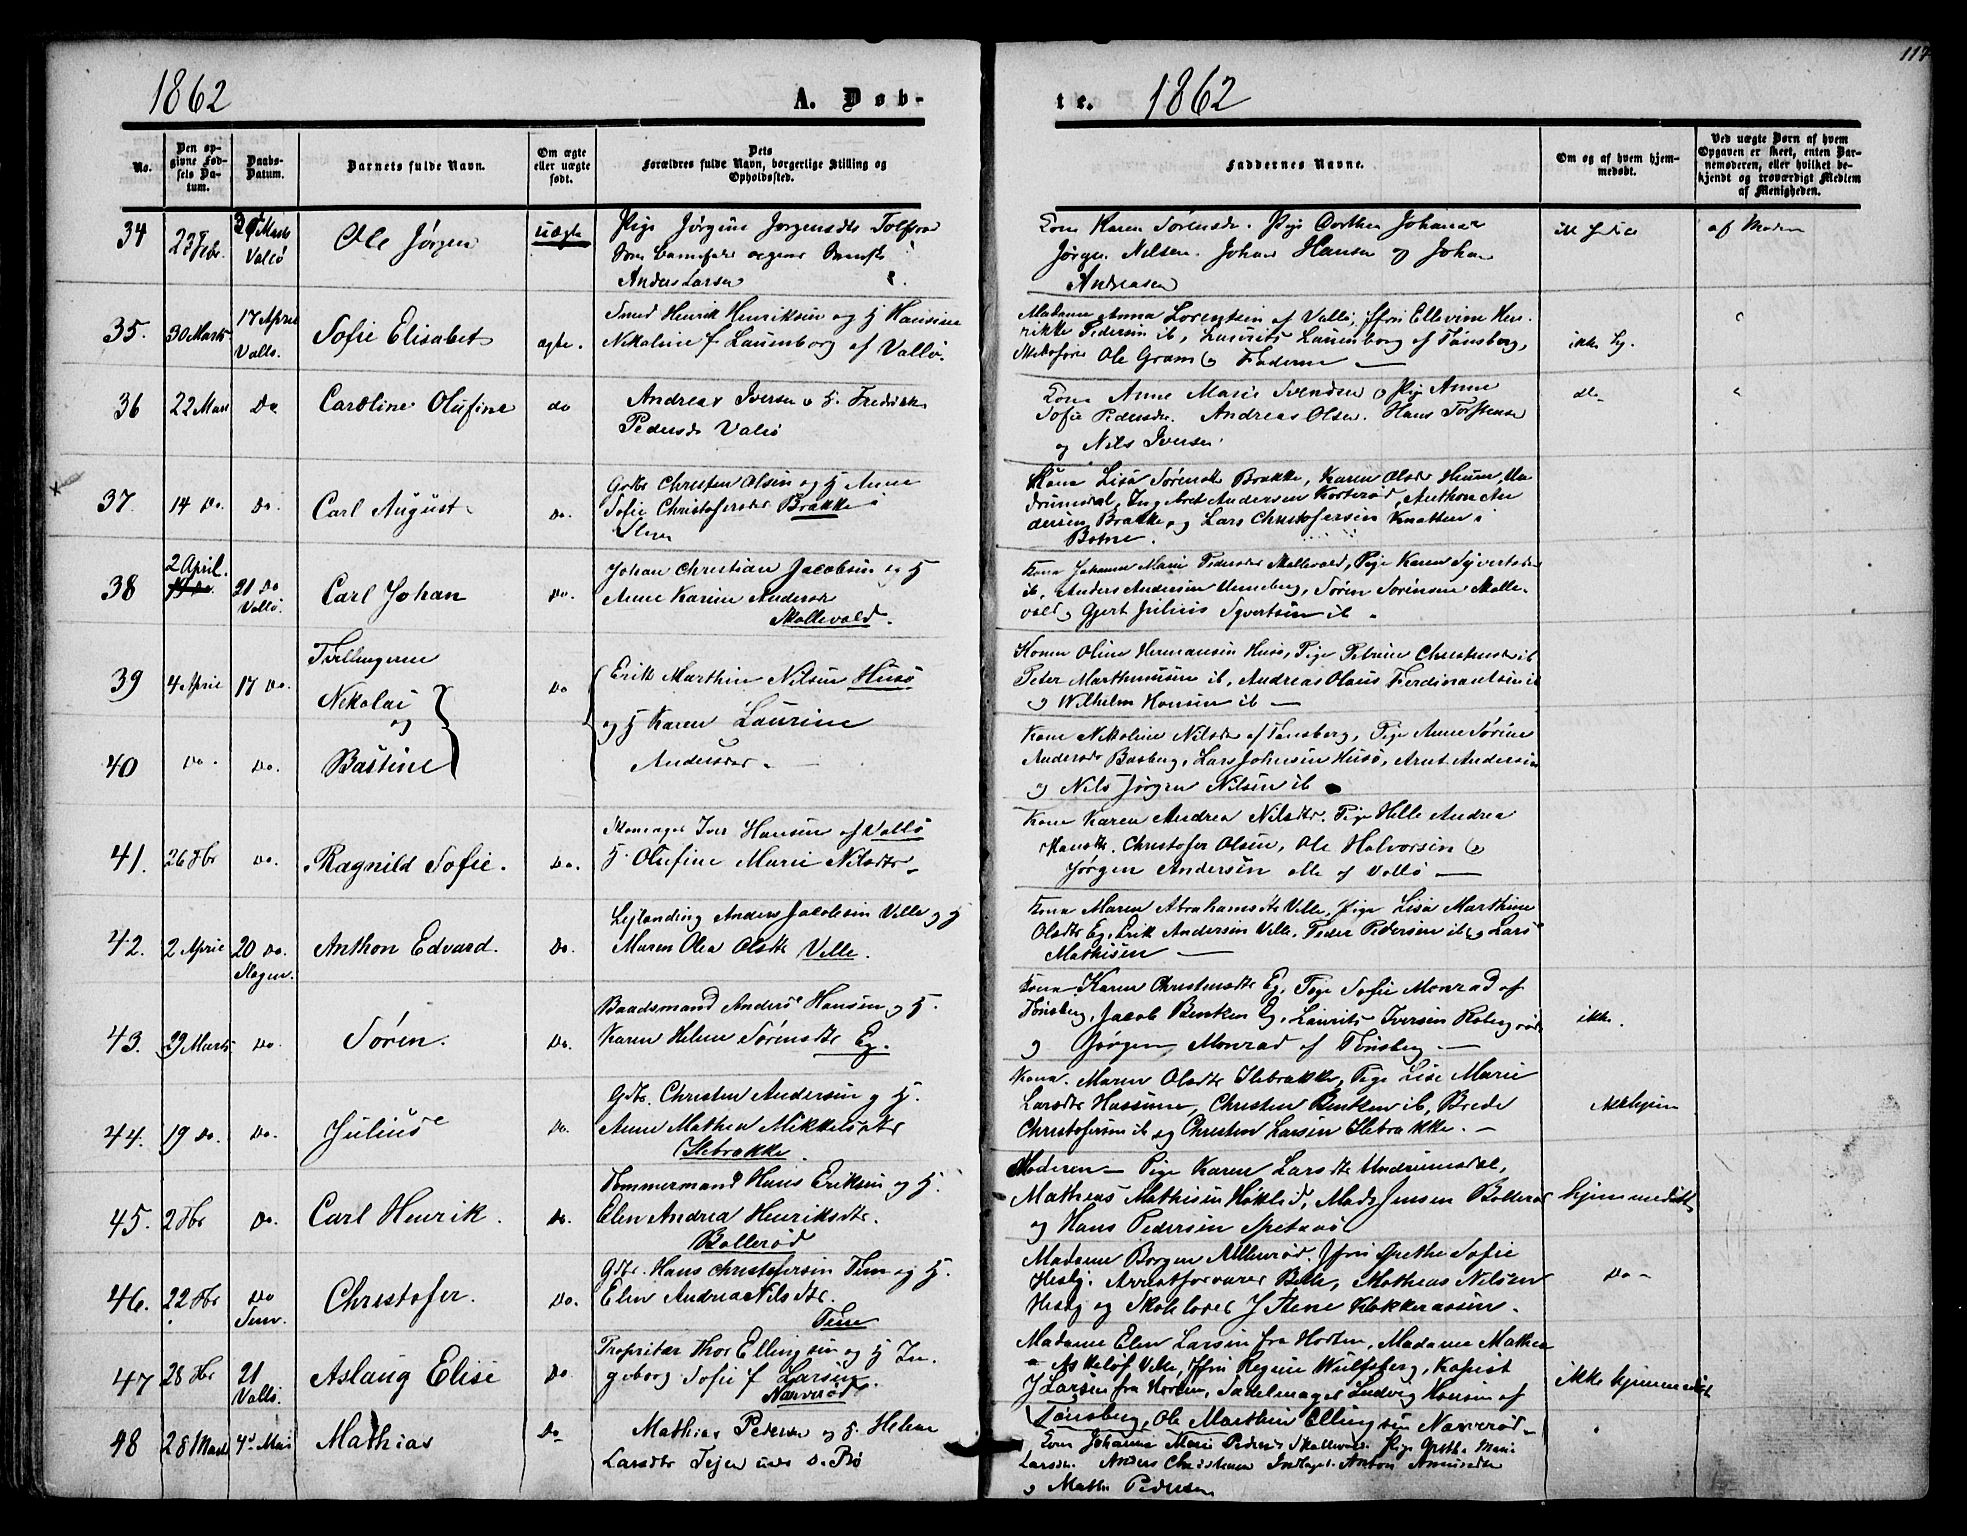 1862
A. Døb-
te.
1862
117
No.
Den opgivne Fødsels Datum.
Daabs-Datum.
Barnets fulde Navn.
Om ægte eller uægte født.
Dets Forældres fulde Navn, borgerlige Stilling og Opholdssted.
Faddernes Navne.
Om og af hvem hjemmedøbt.
Ved uægte Børn af hvem Opgaven er skeet, enten Barnemoderen, eller hvilket bekjendt og troværdigt Medlem af Menigheden.
34
23 Febr.
Vallø
Ole Jørgen
uægte
Pige Jørgine Jørgensdtr
Anders Larsen
Kone Karen Sørensdr. Pige Dorthea Johanne
Jørgen Nilsen. Johan Hansen og Johan
Andreasen
af Moderen
35.
30 Marts
17 April
Vallø.
Sofie Elisabet
ægte.
Smed Henrik Henriksen og H Hansine
Nikoline f Lauenborg af Vallø.
Madame Anna Lorentzen af Vallø, Jfru Ellevine Hen-
rikke Pedersen ib, Laurits Lauenborg af Tønsberg,
Ole Gram og Faderen —
36
22 Mars
Do
Caroline Olufine
do
Andreas Iversen o H. Fredrikke
Pedersdr Vallø
Kone Anne Marie Svendsen o Pige Anne
Sofie Pedersdr. Andreas Olsen. Hans Torstensen
og Nils Iversen
37.
14 Do.
Do.
Carl August
Do.
Gdbr Christen Olsen og H Anne
Sofie Christofersdtr Brække i
Slagen
Kone Lisa Sørensdtr Brække, Karen Olsdtr
Andersen Korterød, Anthon An
dersen Brække og Lars Christofersen Knatten i
Botne.
38
2 April.
21 Do
Vallø.
Carl Johan
Do.
Johan Christian Jacobsen og H
Anne Karine Andersdtr
Skallevold.
Kone Johanne Marie Pedersdtr Skallevold, Pige Karen Syvertsdtr
ib, Anders Andersen Unneberg, Søren Sørensen Skalle-
vold og Gjert Julius Syvertsen ib.
39
4 April
17 Do.
Tvillingerne
Nikolai
og
Do
Erik Marthin Nilsen Husø
og H Karen Laurine
Andersdtr.
Konen Oline Hermansen Husø, Pige Petrine Christensdtr ib
Peter Marthinusen ib, Andreas Olaus Ferdinantsen ib
og Wilhelm Hansen ib —
40
Do.
Do.
Bastine
Kone Nikoline Nilsdtr af Tønsberg, Pige Anne Sørine
Andersdtr Basberg, Lars Johnsen Husø, Arnt Andersen
og Nils Jørgen Nilsen ib
41.
26 Fbr
Do.
Ragnild Sofie.
Do.
Iver Hansen af Vallø
H. Olufine Marie Nilsdtr
Kone Karen Andrea Nilsdtr. Pige Helle Andrea
Hansdtr. Christofer Olsen, Ole Halvorsen og
Jørgen Andersen alle af Vallø —
42.
2 April
20 Do.
Slagen.
Anthon Edvard.
Do.
Leilænding Anders Jacobsen Velle og H
Maren Olea Olsdtr Velle.
Kone Maren Abrahamsdtr Velle, Pige Lisa Marthine
Olsdtr Eg, Erik Andersen Velle, Peder Pedersen ib og Lars
Mathisen —
43.
29 Marts
Do.
Søren.
Do.
Baadsmand Anders Hansen og H.
Karen Helene Sørensdtr Eg.
Kone Karen Christensdtr Eg, Pige Sofie Monrad af
Tønsberg, Jacob Bentsen Eg, Laurits Iversen
og Jørgen Monrad af Tønsberg —
ikke.
44.
19 Do.
Do.
Julius
Do.
Gdbr. Christen Andersen og H.
Anne Mathea Mikkelsdtr
Ilebrække.
Kone Maren Olsdtr Ilebrække, Pige Lise Marie
Larsdtr Hassum, Christen Bentsen ib, Brede
Christofersen ib og Christen Larsen Ilebrække. —
ikke hjem
45.
2 Fbr
Do.
Carl Henrik.
Do.
Tømmermand Hans Eriksen og H.
Elen Andrea Henriksdtr.
Bollerød
Moderen — Pige Karen Larsdtr Undrumsdal,
Mathias Mathisen, Mads Jensen Bollerød
og Hans Pedersen
hjemmedøbt
46.
22 Fbr
Do
Sem.
Christofer.
Do.
Gdbr. Hans Christofersen Tem og H.
Elen Andrea Nilsdtr.
Tem
Madame Borgen Ollerød, Jfru Grethe Sofie
Hesby, Arrestforvarer Belle, Mathias Nilsen
Hesby og Skolelærer J Stene Klokkeraasen.
Do —
47
28 Fbr
21
Vallø.
Aslaug Elise
Do
Proprietær Thor Ellingsen og H In-
geborg Sofie f Larsen.
Narverød
Madame Elen Larsen fra Horten, Madame Mathea
Askeløf Velle, Jfru Regine Wulfsberg, Kopist
J Larsen fra Horten, Sadelmager Ludvig Hansen af
Tønsberg, Ole Marthin Ellingsen Narverød
ikke hjemmedøbt
48
28 Marts
4d Mai
Mathias
Do
Mathias Pedersen og H. Helene
Larsdtr Teien
Kone Johanne Marie Pedersdtr Skallevold. Pige Grethe Marie
Larsdtr. Anders Christensen Anton
og Mathias Pedersen